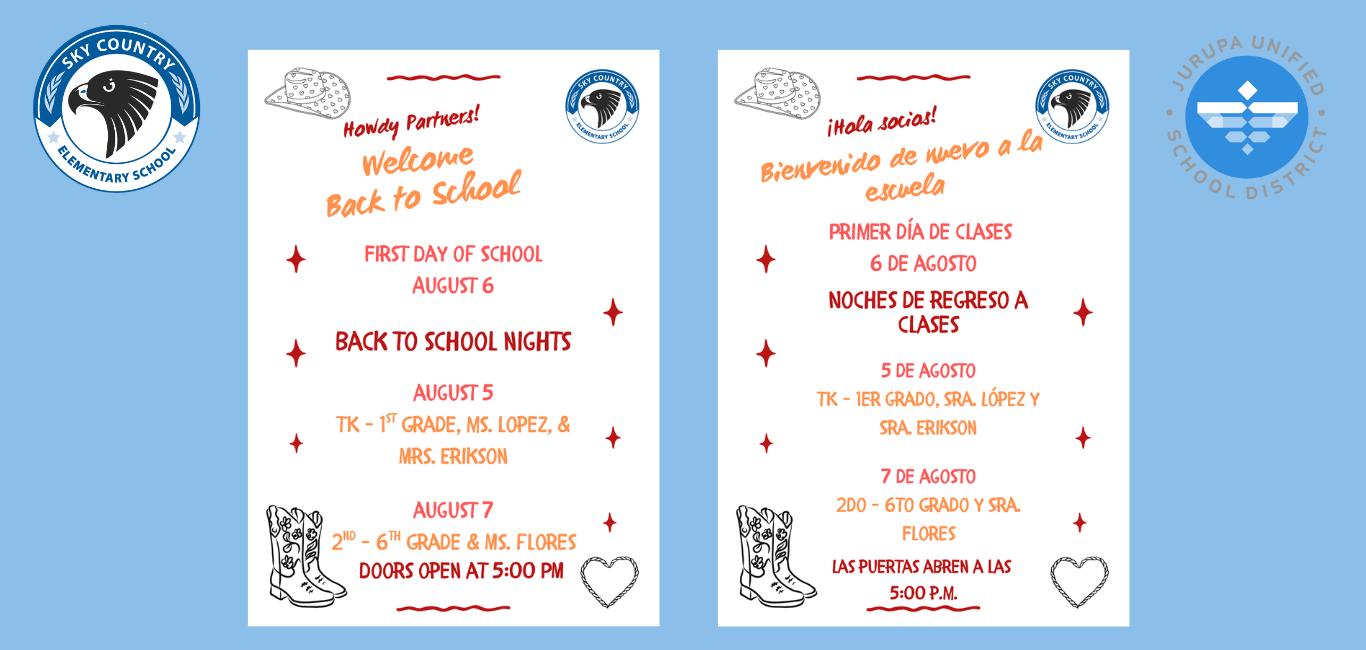 SKY COUNTRY
ELEMENTARY SCHOOL
Howdy Partners!
SKY COUNTRY
ELEMENTARY SCHOOL
Welcome
Back to School
FIRST DAY OF SCHOOL
AUGUST 6
BACK TO SCHOOL NIGHTS
AUGUST 5
TK - 1ST GRADE, MS. LOPEZ, &
MRS. ERIKSON
AUGUST 7
2ND - 6TH GRADE & MS. FLORES
DOORS OPEN AT 5:00 PM
¡Hola socios!
SKY COUNTRY
ELEMENTARY SCHOOL
Bienvenido de nuevo a la
escuela
PRIMER DÍA DE CLASES
6 DE AGOSTO
NOCHES DE REGRESO A
CLASES
5 DE AGOSTO
TK - 1ER GRADO, SRA. LÓPEZ Y
SRA. ERIKSON
7 DE AGOSTO
2DO - 6TO GRADO Y SRA.
FLORES
LAS PUERTAS ABREN A LAS
5:00 P.M.
JURUPA UNIFIED
SCHOOL DISTRICT